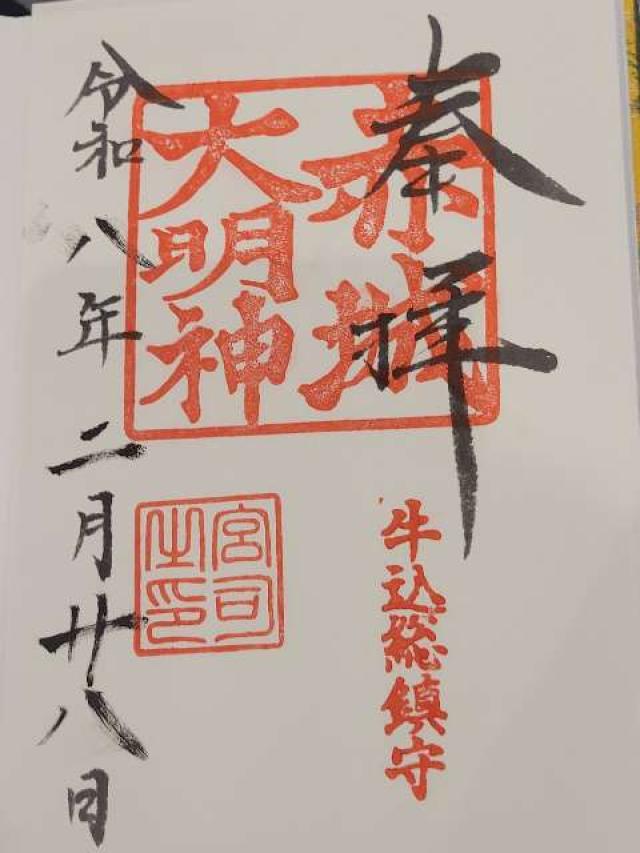 奉拝
赤城
大明神
牛込総鎮守
宮司
之印
令和八年二月廿八日